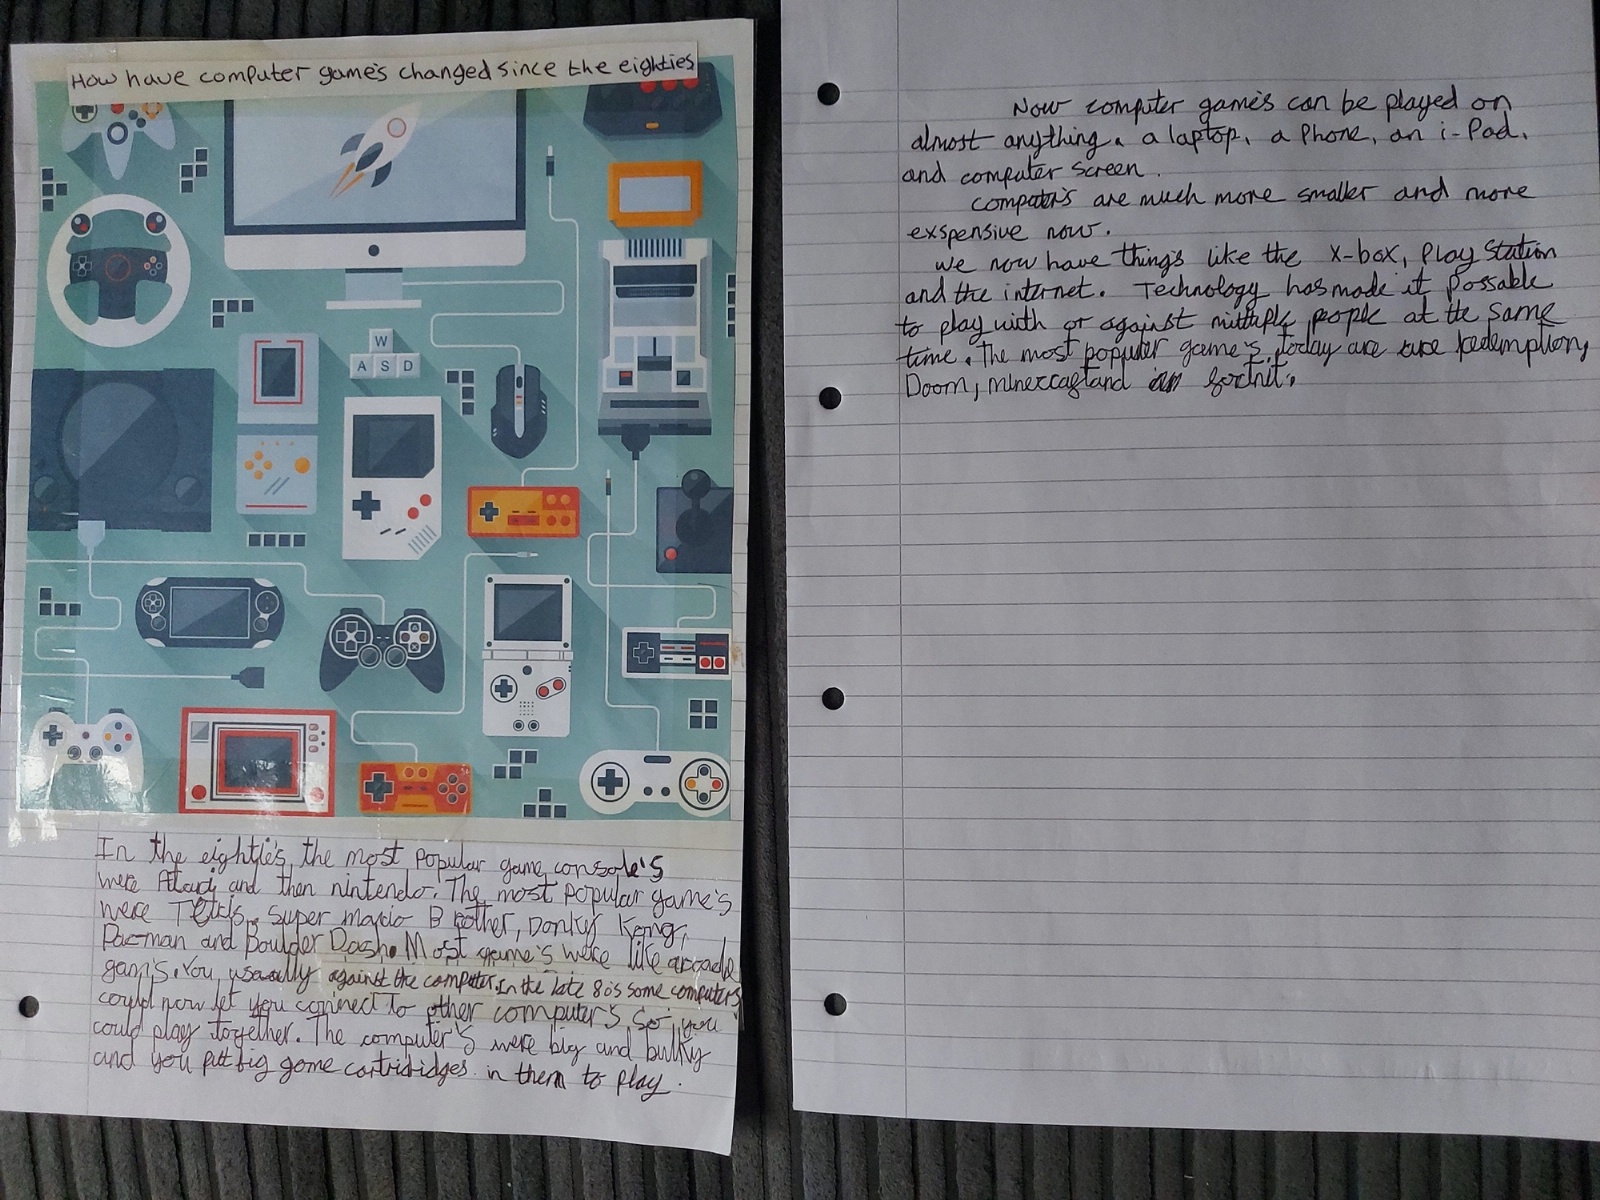 How have computer game's changed since the eighties
W
A S D
In the eightie's the most popular game console's
were Atari and then nintendo. The most popular game's
were Tetris, Super mario Brother, Donky Kong,
Pac-man and Boulder Dash. Most game's were like arcade
gam's. You usually against the computer. In the late 80is some computers
could now let you connect to other computer's so you
could play together. The computer's were big and bulky
and you put big game cartridges in them to play.
Now computer game's can be played on
almost anything. a laptop, a Phone, an i-Pad,
and computer screen.
computer's are much more smaller and more
exspensive now.
we now have thing's like the X-box, Play Station
and the internet. Technology has made it possable
to play with or against multiple people at the same
time. The most populer game's today are Redemption,
Doom, and fortnit.